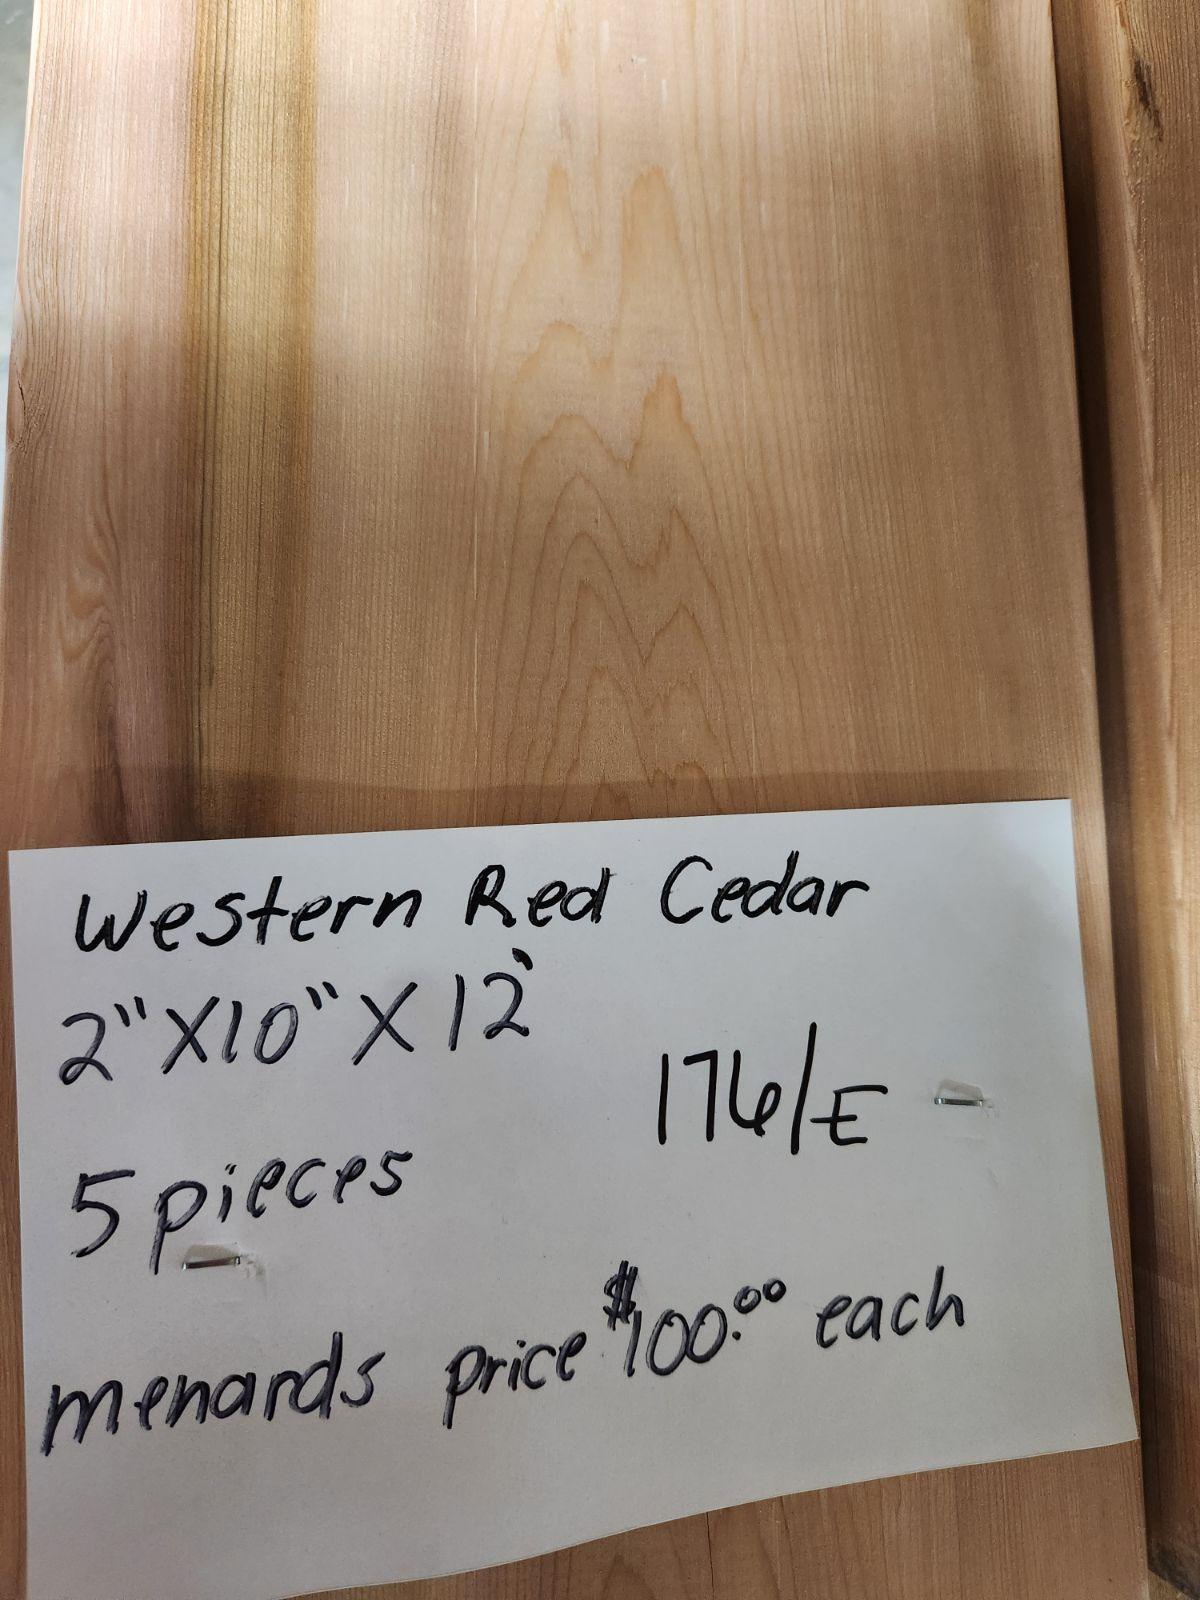 Western Red Cedar
2"X10"X12'
176/E
5 pieces
menards price $100.00 each